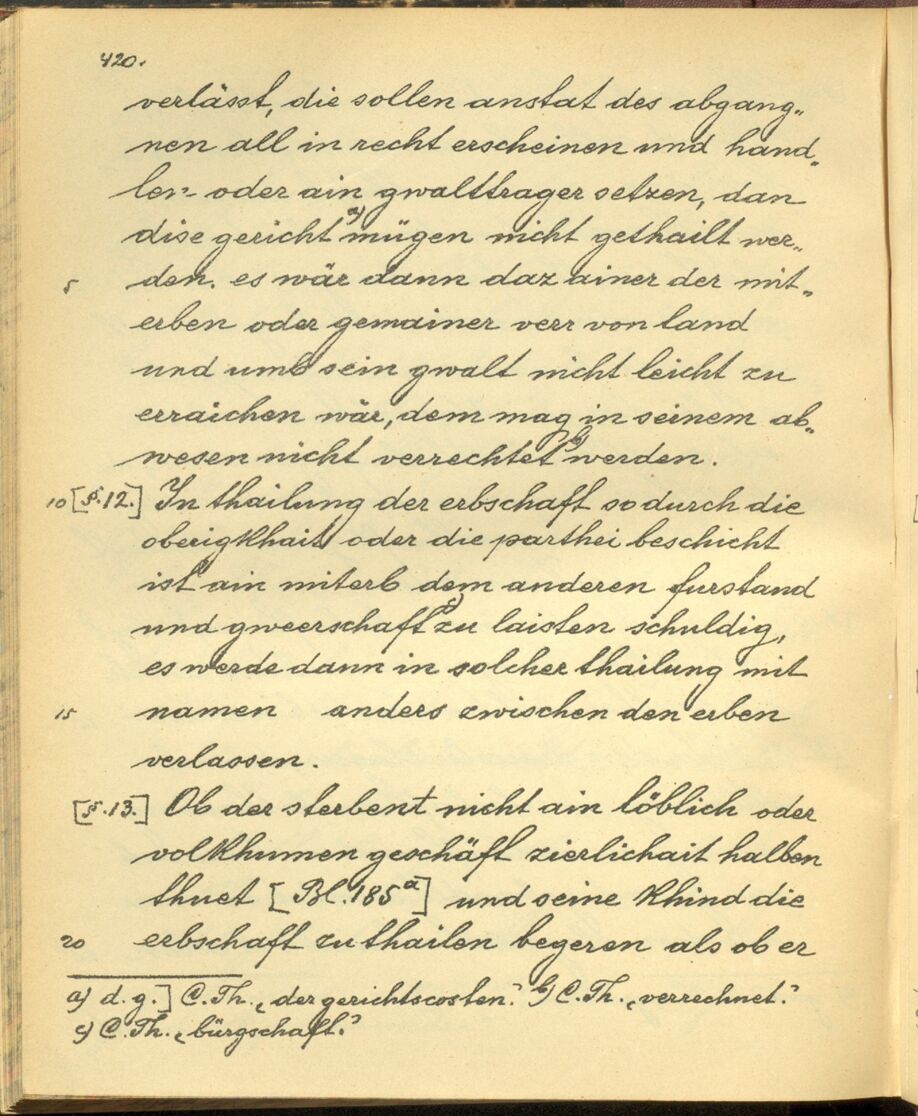 420.
verlässt, die sollen anstat des abgang„
nen all in recht erscheinen und hand„
len oder ain gwalttrager setzen, dan
dise gericht a) mügen nicht gethailt wer„
5 den. es wär dann daz ainer der mit„
erben oder gemainer verr von land
und umb sein gwalt nicht leicht zu
erraichen wär, dem mag in seinem ab„
wesen nicht verrechtet b) werden.
10 [§.12.] In thailung der erbschaft so durch die
oberigkhait oder die parthei beschicht
ist ain miterb dem anderen furstand
und gweerschaft c) zu laisten schuldig,
es werde dann in solcher thailung mit
15 namen anders zwischen den erben
verlassen.
[§.13.] Ob der sterbent nicht ain löblich oder
volkhumen geschäft zierlichait halben
thuet [Bl. 185a] und seine khind die
20 erbschaft zu thailen begeren als ob er
a) d. g.] C. Th. „der gerichtscosten." b) C. Th. „verrechnet."
c) C. Th. „bürgschaft."